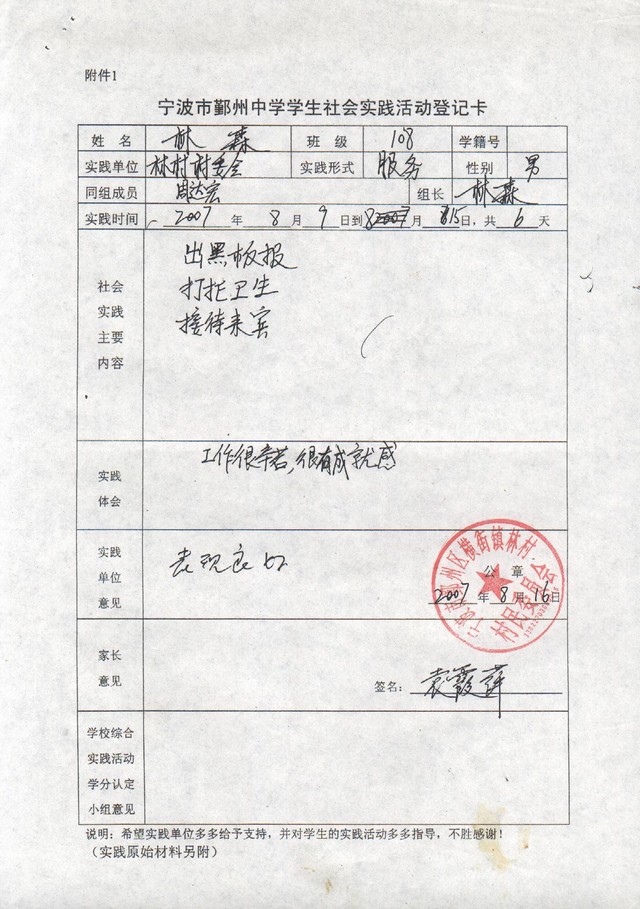 附件1
宁波市鄞州中学学生社会实践活动登记卡
姓 名 林 森 班 级 108 学籍号
实践单位 林村村委会 实践形式 服务 性别 男
同组成员 周达宏 组长 林森
实践时间 2007 年 8 月 9 日到 8 月 15 日，共 6 天
社会实践主要内容
出黑板报
打扫卫生
接待来宾
实践体会
工作很辛苦，很有成就感
实践单位意见
表现良好
公 章
2007 年 8 月 16 日
宁波市鄞州区横街镇林村村民委员会
家长意见
签名：袁霞萍
学校综合
实践活动
学分认定
小组意见
说明：希望实践单位多多给予支持，并对学生的实践活动多多指导，不胜感谢！
（实践原始材料另附）